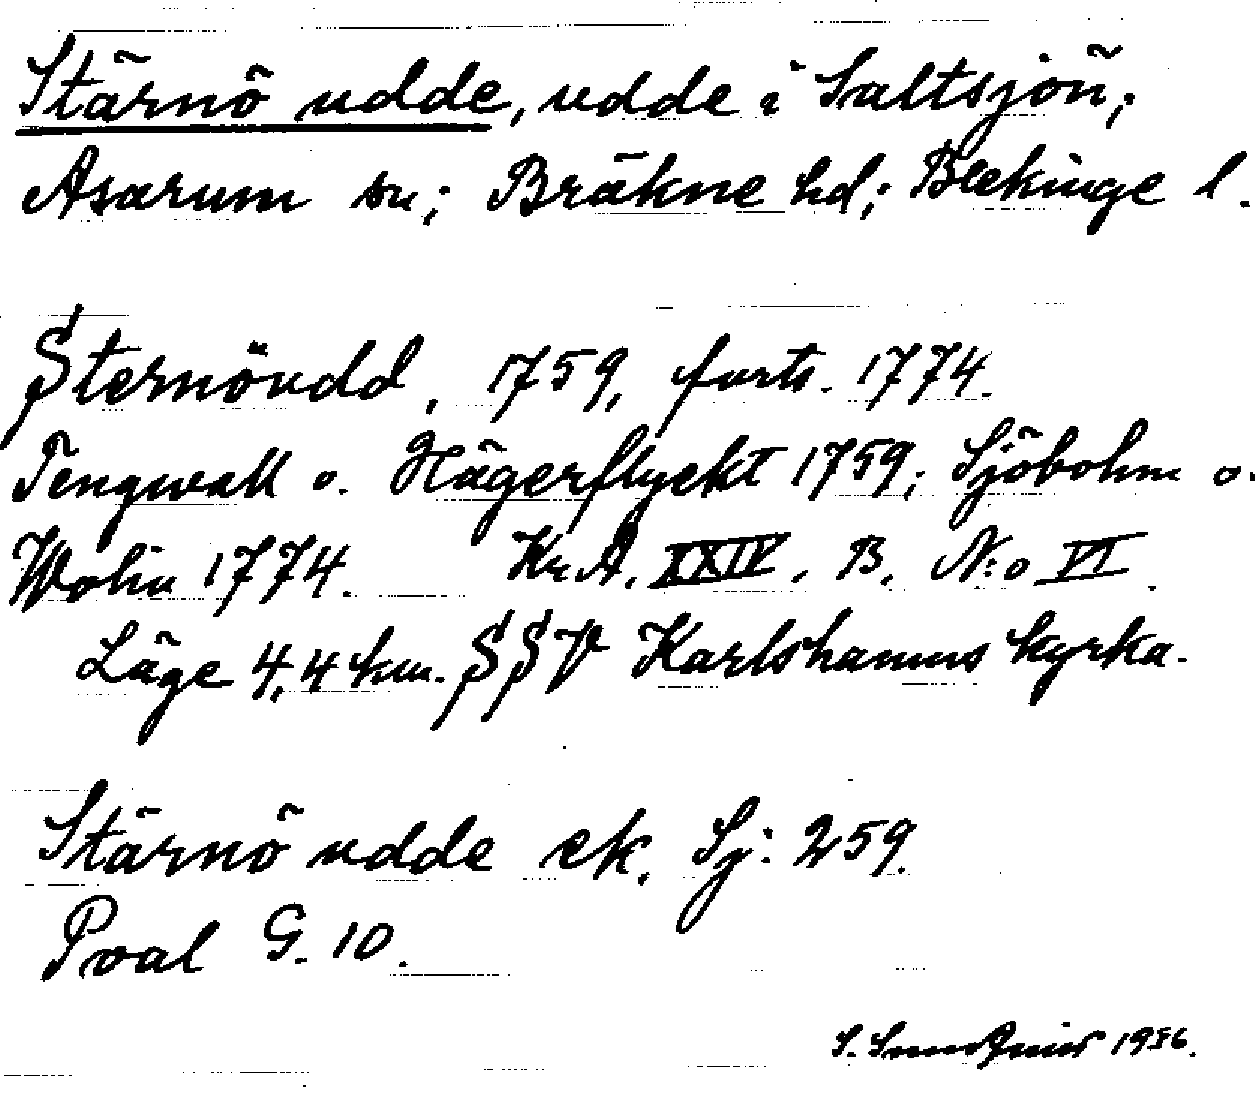 Stärnö udde, udde i Saltsjön;
Asarum sn; Bräkne hd; Blekinge l.
Sternöudd, 1759, forts. 1774.
Tengwall o. Hägerflyckt 1759; Sjöbohm o.
Wolin 1774. Kr.A. XXIV, B. N:o VI.
Läge 4,4 km. SSV Karlshamns kyrka.
Stärnö udde ek. Sj: 259.
Poal G. 10.
S. 1936.